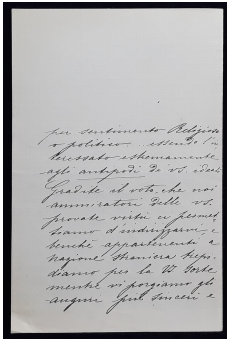 per sentimento Religioso
o politico essendo l'in
teressato estremamente
agli antipodi di vs. idee.
Gradite il voto, che noi
ammiratori delle vs.
provate virtù ci permet
tiamo d'indirizzarvi, e
benchè appartenenti a
nazione straniera trepi
diamo per la Vs sorte
mentre vi porgiamo gli
auguri più sinceri e